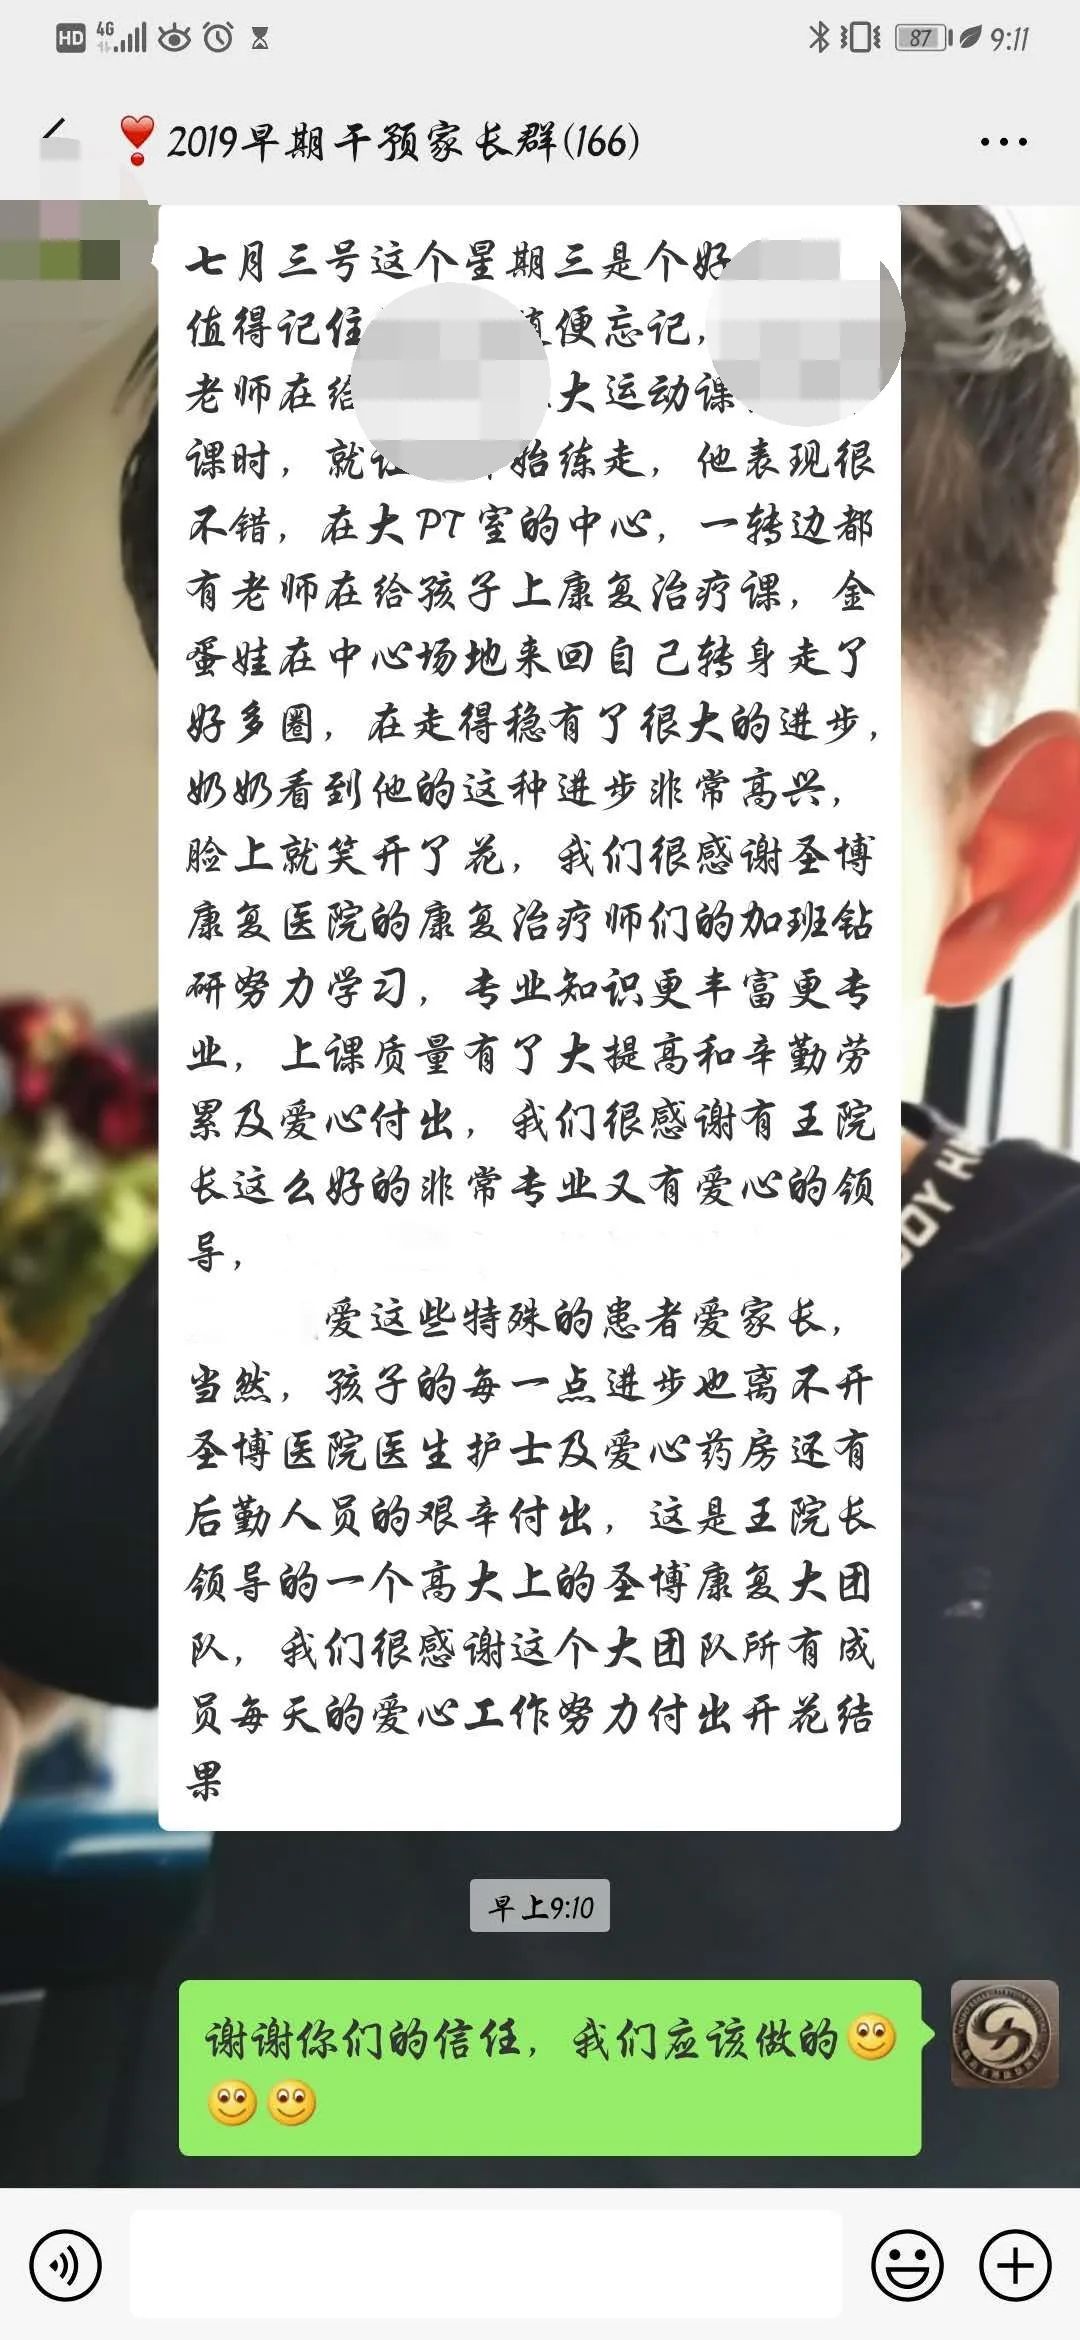 HD 4G 87 9:11
2019早期干预家长群(166)
七月三号这个星期三是个好
值得记住 便忘记，
老师在给 大运动课
课时，就 始练走，他表现很
不错，在大PT室的中心，一转边都
有老师在给孩子上康复治疗课，金
蛋娃在中心场地来回自己转身走了
好多圈，在走得稳有了很大的进步，
奶奶看到他的这种进步非常高兴，
脸上就笑开了花，我们很感谢圣博
康复医院的康复治疗师们的加班钻
研努力学习，专业知识更丰富更专
业，上课质量有了大提高和辛勤劳
累及爱心付出，我们很感谢有王院
长这么好的非常专业又有爱心的领
导，
爱这些特殊的患者爱家长，
当然，孩子的每一点进步也离不开
圣博医院医生护士及爱心药房还有
后勤人员的艰辛付出，这是王院长
领导的一个高大上的圣博康复大团
队，我们很感谢这个大团队所有成
员每天的爱心工作努力付出开花结
果
早上9:10
谢谢你们的信任，我们应该做的